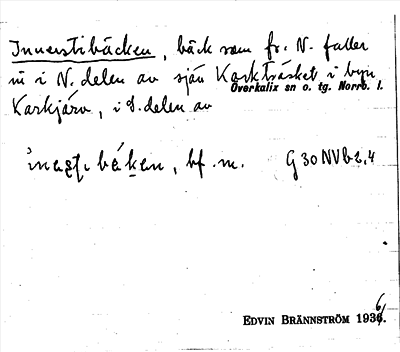 Innerstibäcken, bäck som fr. N. faller
in i N. delen av sjön Karkträsket i byn
Överkalix sn o. tg. Norrb. l.
Karkjärv, i S. delen av
bf. m. G 30 NV b 2, 4
EDVIN BRÄNNSTRÖM 1936.